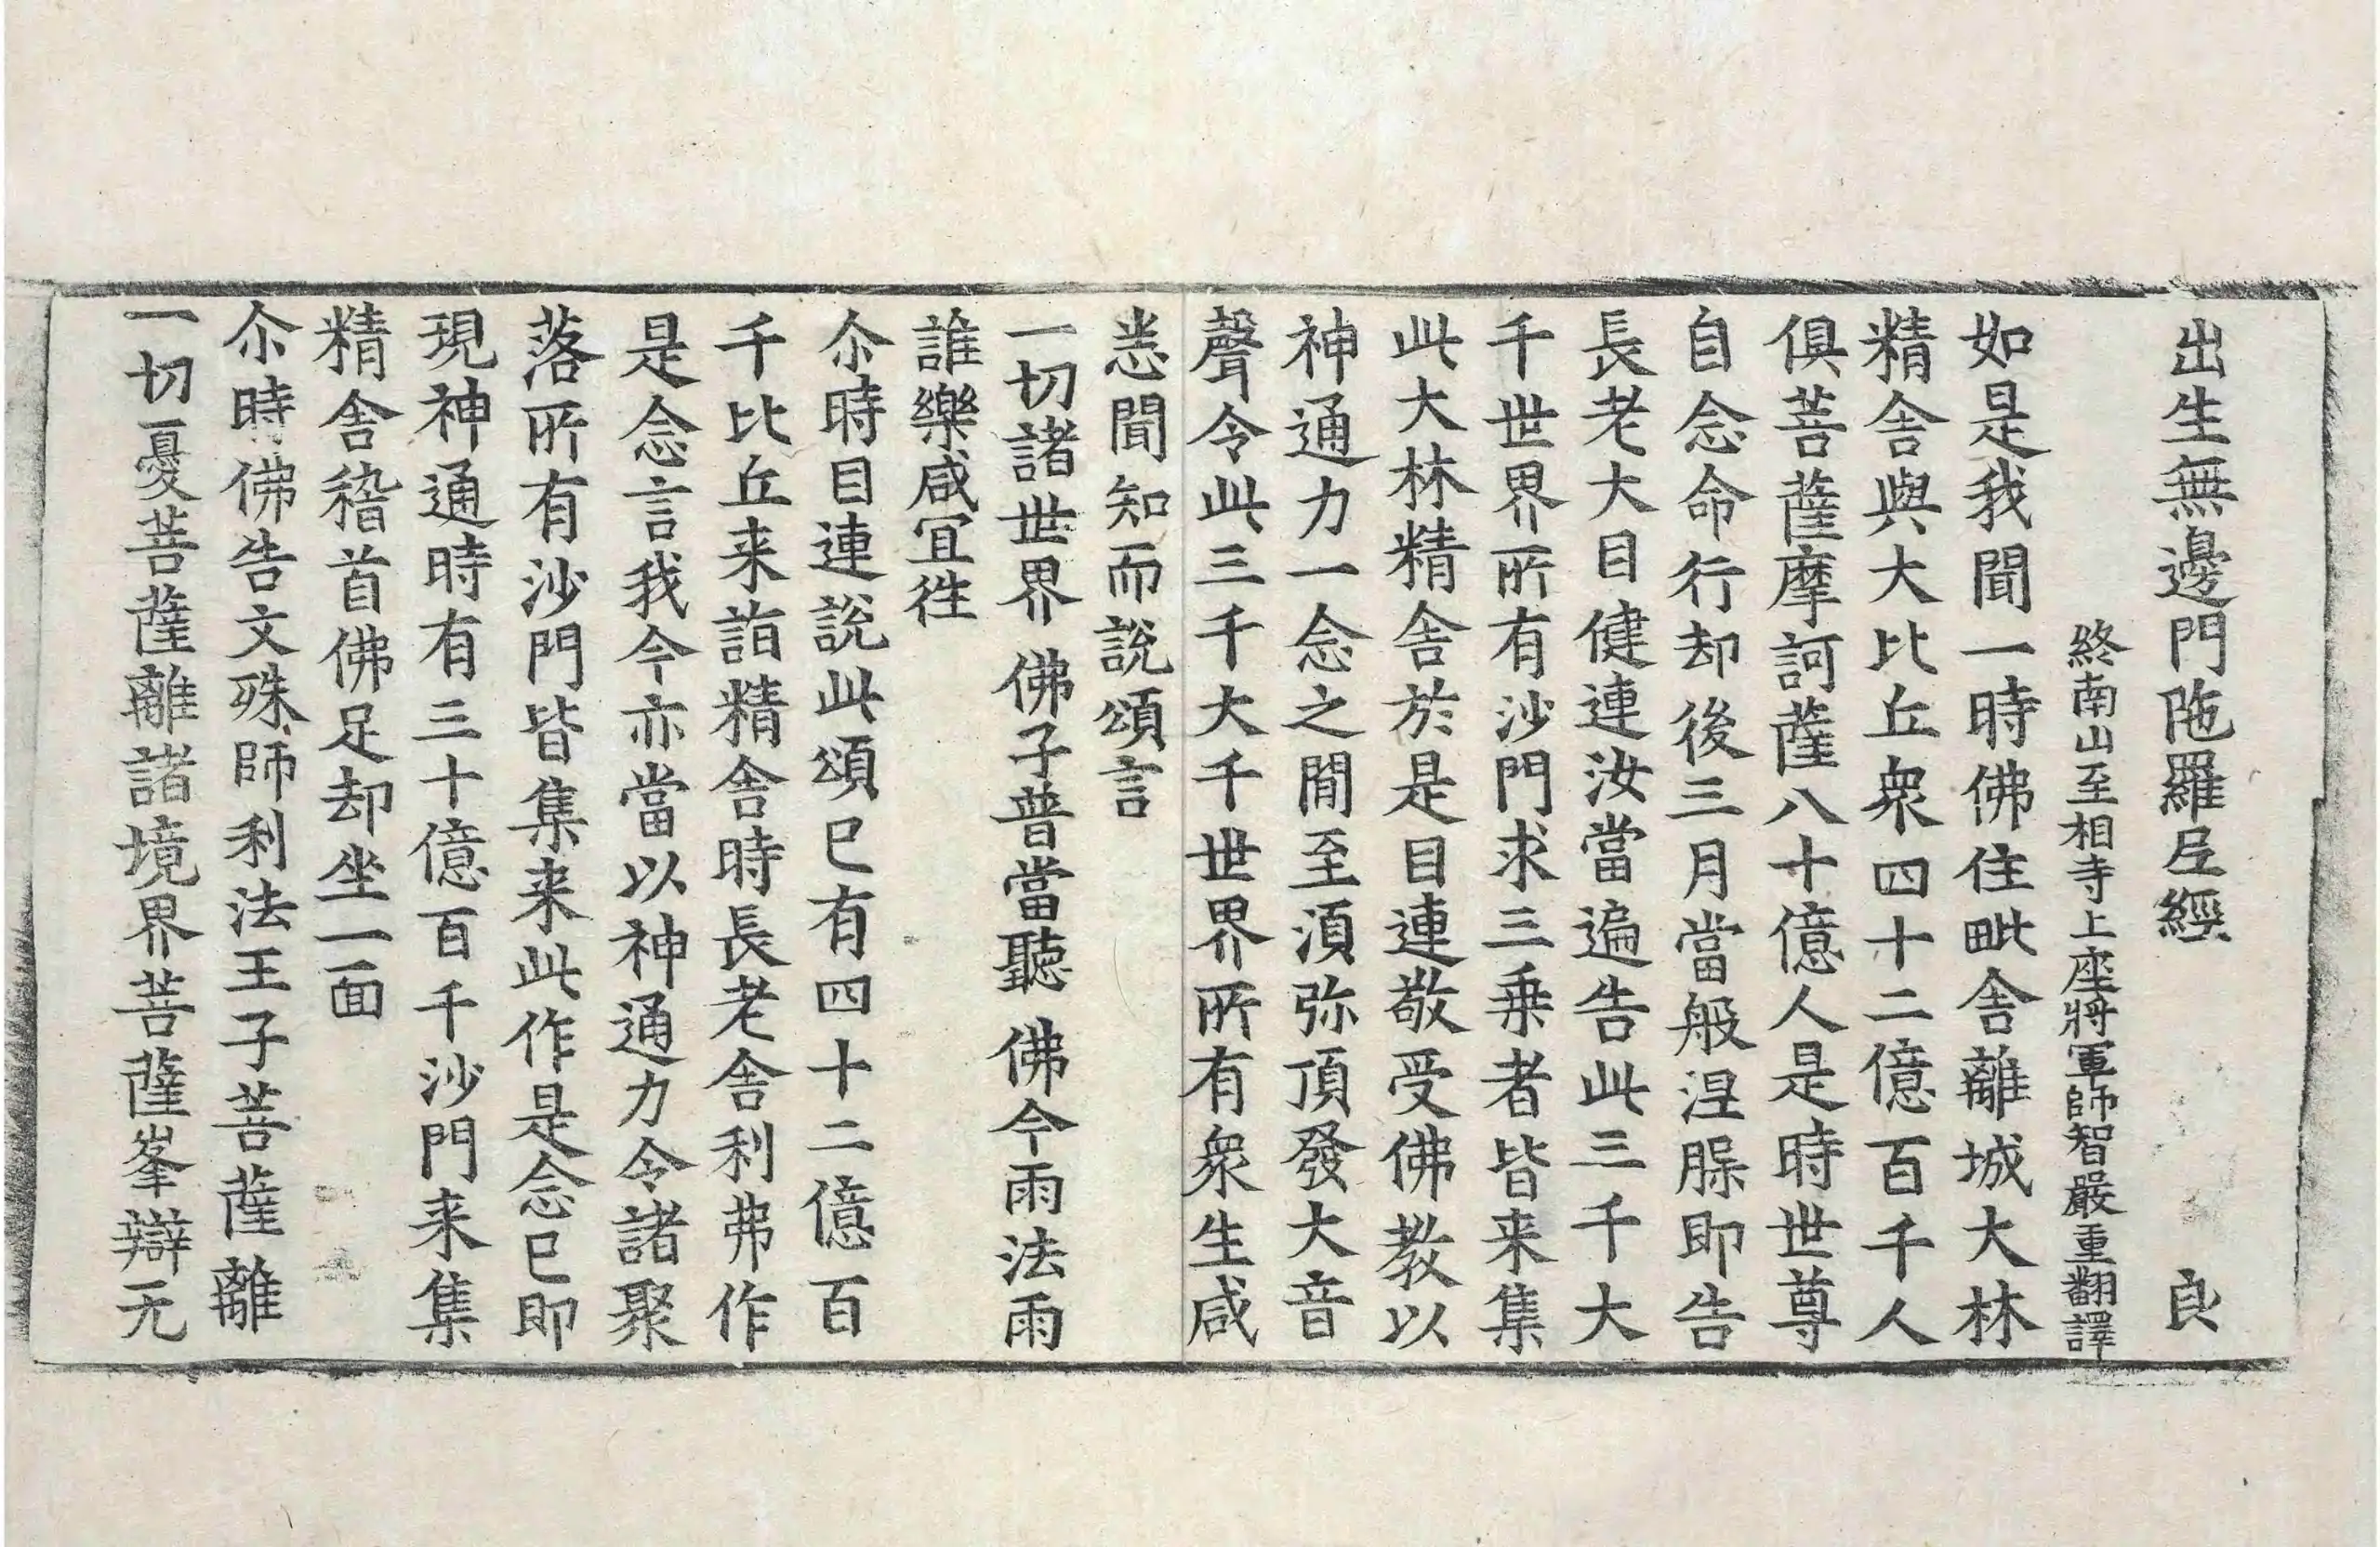 出生無邊門陁羅尼經 良
終南山至相寺上座將軍師智嚴重翻譯
如是我聞一時佛住毗舍離城大林
精舍與大比丘衆四十二億百千人
俱菩薩摩訶薩八十億人是時世尊
自念命行却後三月當般涅膸即告
長老大目健連汝當遍告此三千大
千世界所有沙門求三乗者皆来集
此大林精舍於是目連敬受佛教以
神通力一念之閒至湏弥頂發大音
聲令此三千大千世界所有衆生咸
悉聞知而說頌言
一切諸世界 佛子普當聽 佛今雨法雨
誰樂咸冝徃
尒時目連說此頌已有四十二億百
千比丘来詣精舍時長老舍利弗作
是念言我今亦當以神通力令諸聚
落所有沙門皆集来此作是念已即
現神通時有三十億百千沙門来集
精舍稽首佛足却坐一面
尒時佛告文殊師利法王子菩薩離
一切憂菩薩離諸境界菩薩峯辯无